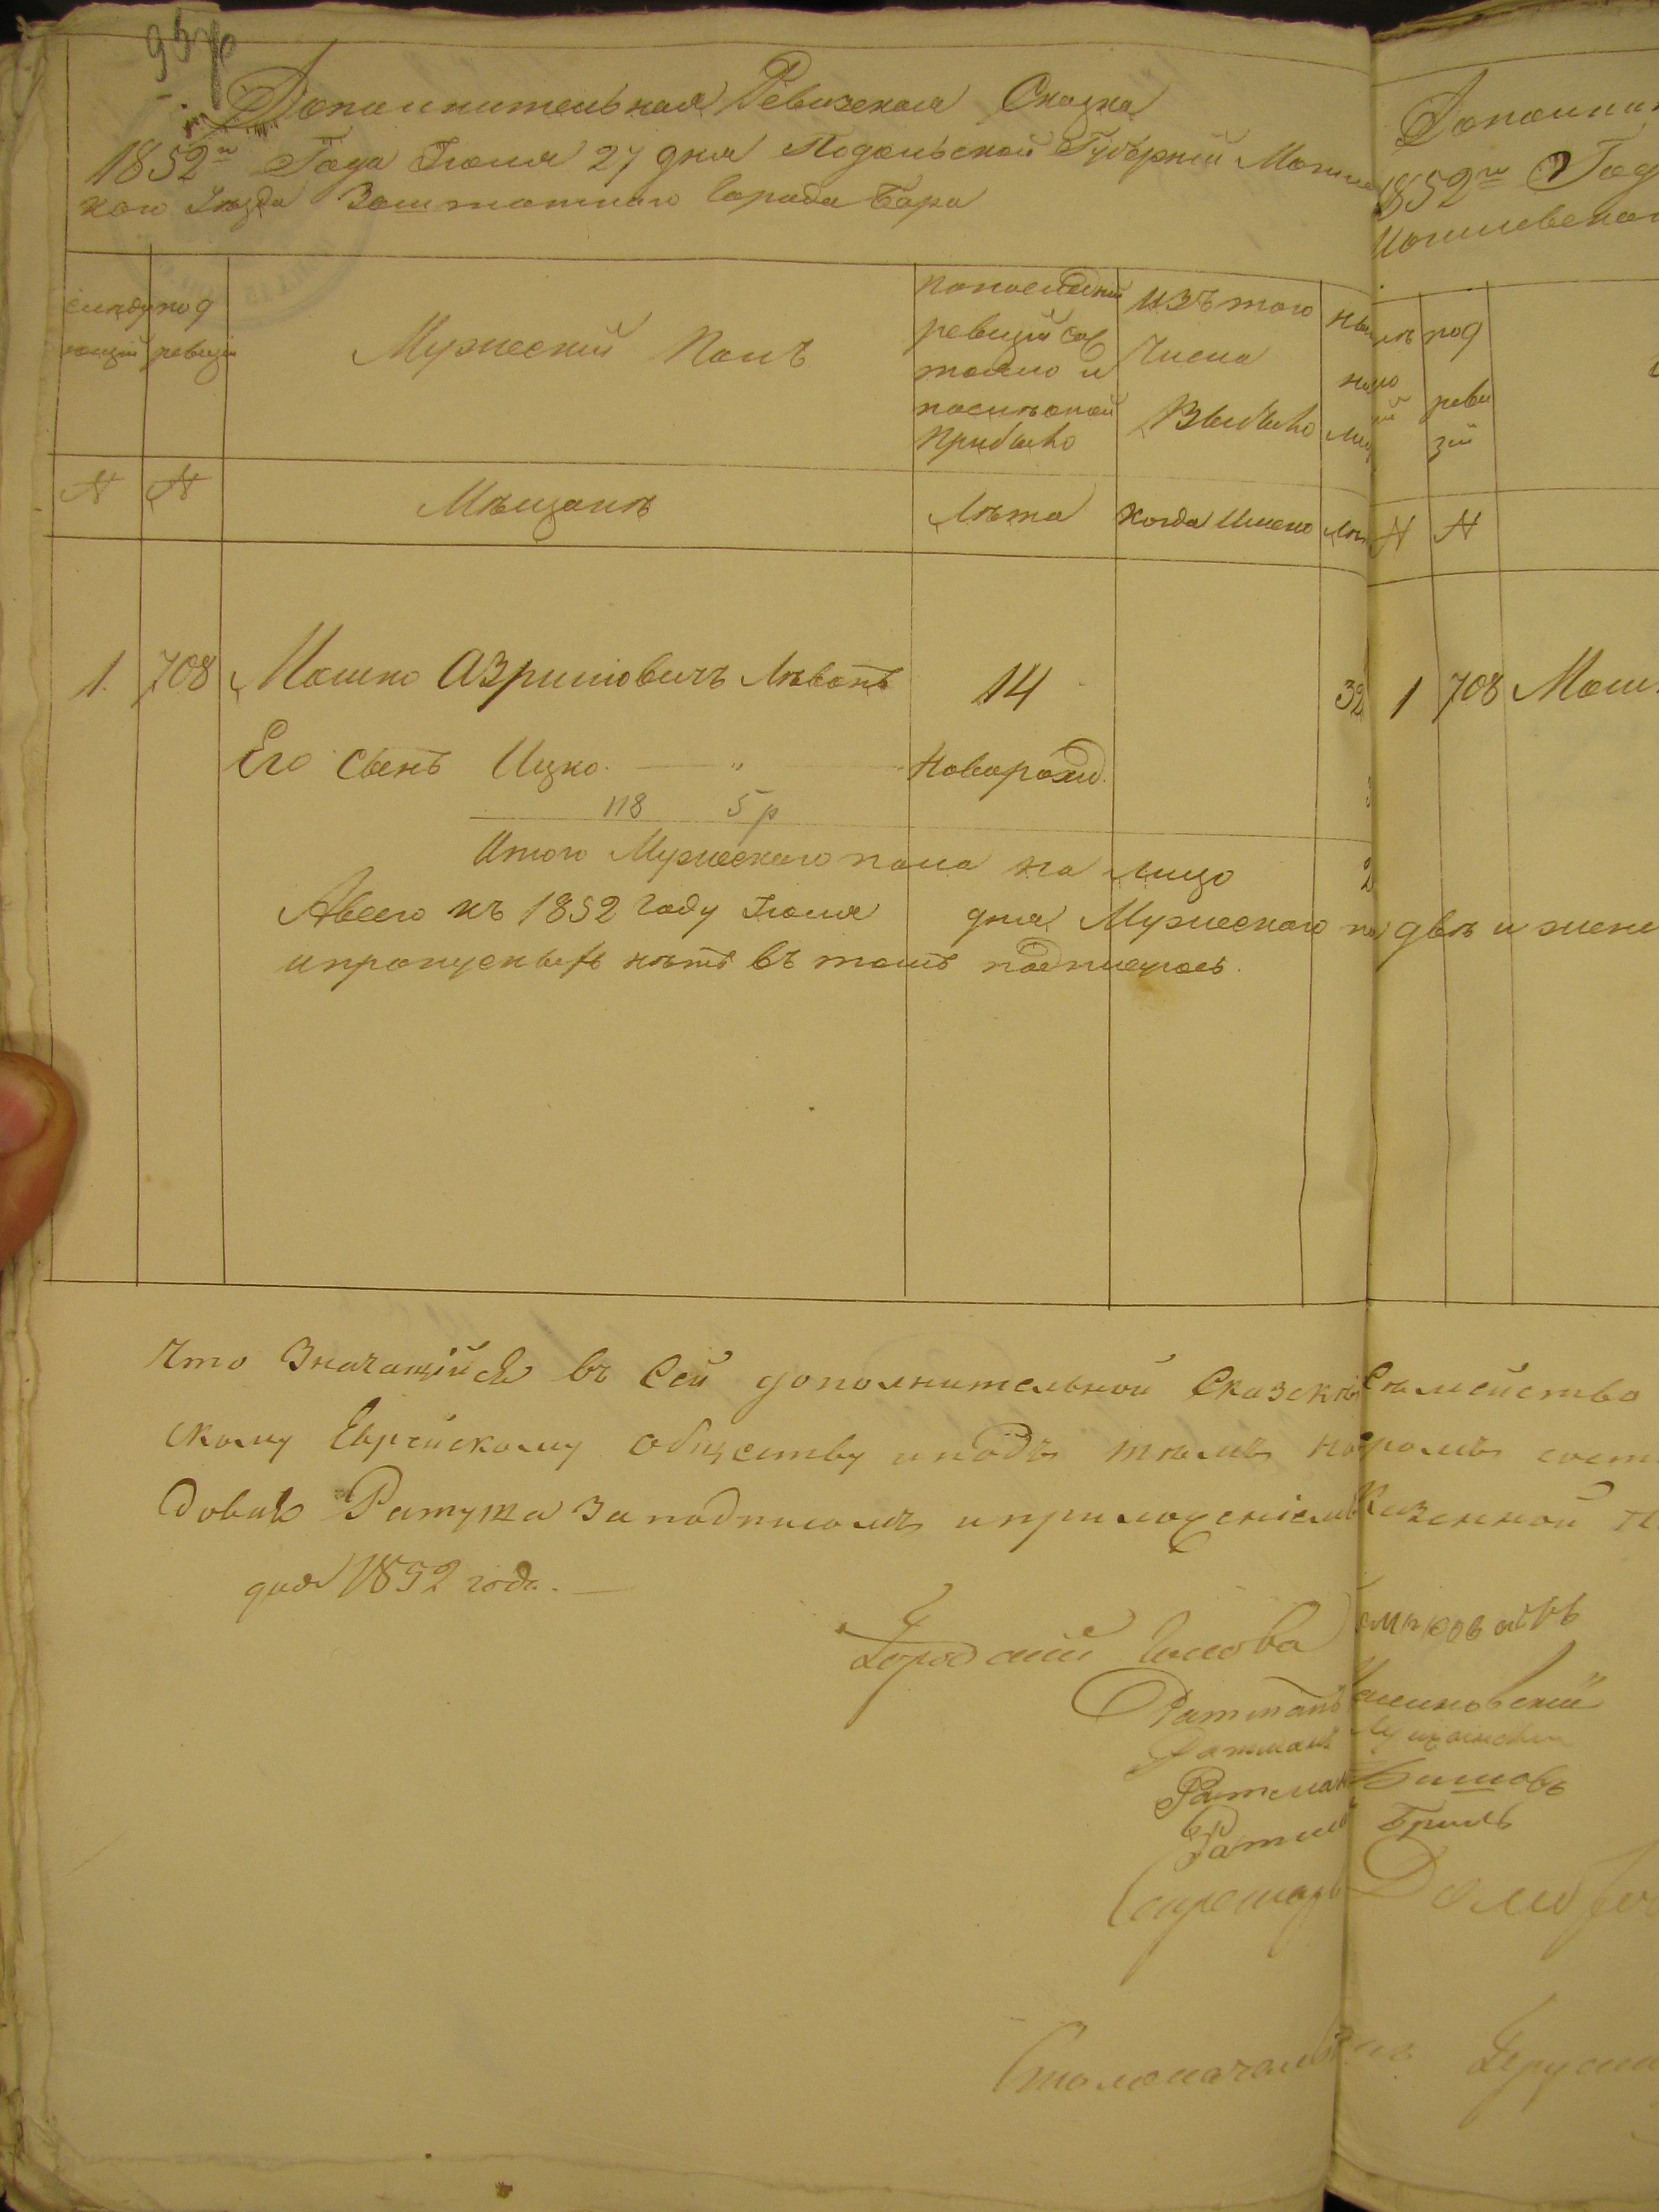 957
Дополнительная Ревизская Сказка
1852го Года Июля 27 дня Подольской Губерніи Могилев
кого Уезда Заштатного Города Бара
следу под
ющій ревизіи
Мужескій Полъ
По последній ревизіи сос тояло и после оной Прибыло
Изъ того Числа Выбыло
Ны не на ли
№ № Мещане Лета Когда Имено Ле
1. 708 Мошко Азриловичъ 14 32
Его Сынъ Ицко " Новорожд.
118 5 р
Итого Мужеского пола на лицо 2
Авсего къ 1852 Году Июля дня Мужеского по
ипропускныхъ нетъ въ томъ подписуюсь.
Что Значащійся въ Сей дополнительной Сказкѣ Сѣмейство
скому Еврейскому обществу иподъ тѣмъ
довой Ратуша Заподписомъ иприложеніемъ Казенной
дня 1852 года.
Городской Глова
Ратманъ
Ратманъ
Ратман
Ратман Бриль
Секретарь
Столоначальникъ
Дополни
1852го Год
Могилевског
под реви зіи
№ №
1 708 Мошк
двѣ и женс